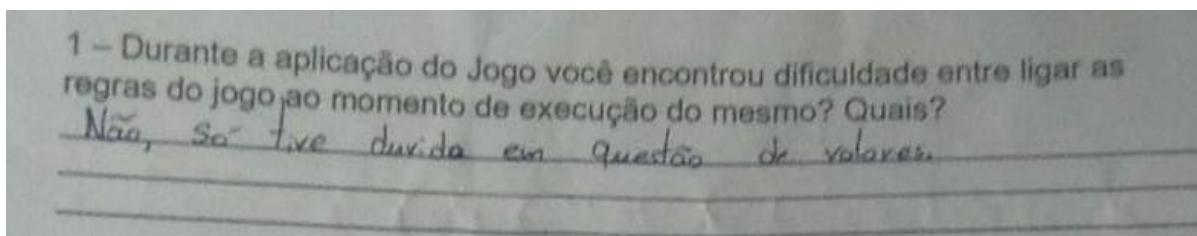 1 – Durante a aplicação do Jogo você encontrou dificuldade entre ligar as
regras do jogo ao momento de execução do mesmo? Quais?
Não, só tive duvida em questão de valores.